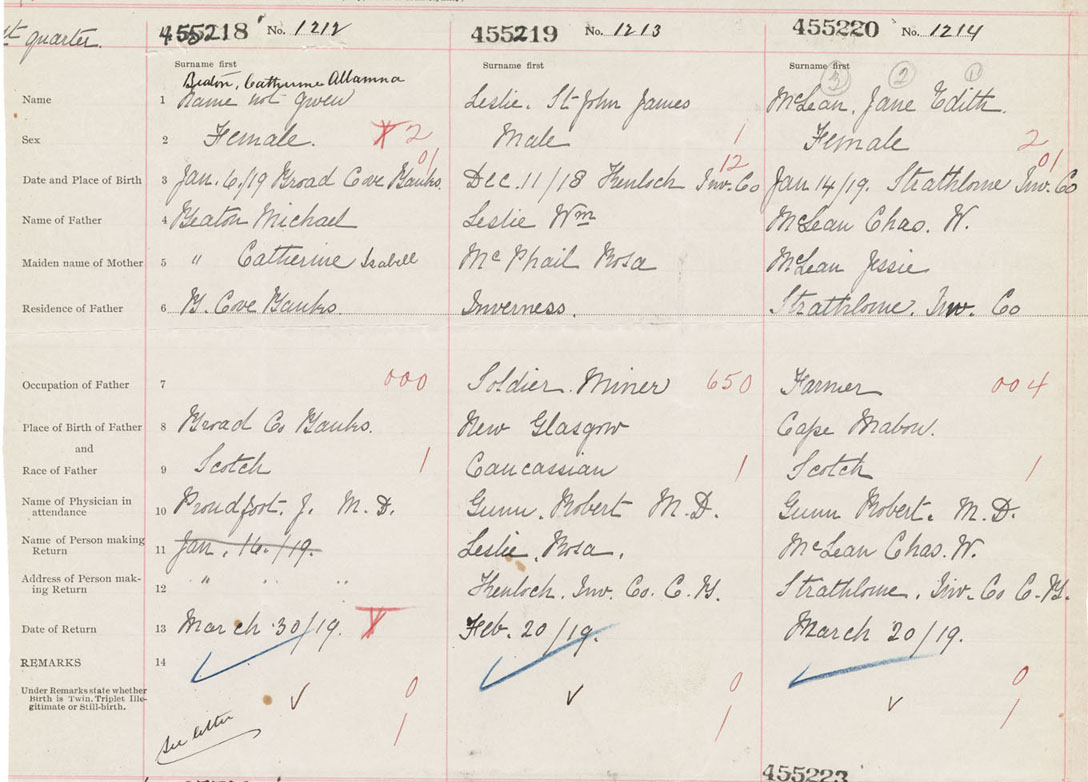 1st quarter.
455218 No. 1212 455219 No. 1213 455220 No. 1214
Surname first Surname first Surname first
3 2 1
Beaton, Catherine
Name 1 Name not given Leslie, St John James McLean, Jane Edith.
Sex 2 Female. X 2 Male 1 Female 2
01 12 01
Date and Place of Birth 3 Jan. 6/19 Broad Cove Banks. Dec. 11/18 Kenloch Inv. Co Jan 14/19. Strathlorne Inv. Co
Name of Father 4 Beaton Michael Leslie Wm McLean Chas. W.
Maiden name of Mother 5 " Catherine Isabell McPhail Rosa McLean Jessie
Residence of Father 6 B. Cove Banks. Inverness. Strathlorne. Inv. Co
Occupation of Father 7 000 Soldier. Miner 650 Farmer 004
Place of Birth of Father 8 Broad Co Banks. New Glasgow Cape Mabou.
and
Race of Father 9 Scotch 1 Caucassian 1 Scotch 1
Name of Physician in
attendance 10 Proudfoot. J. M. D. Gunn, Robert M. D. Gunn Robert. M. D.
Name of Person making
Return 11 Jan. 16./19. Leslie, Rosa. McLean Chas. W.
Address of Person mak-
ing Return 12 " " " Kenloch. Inv. Co. C. B. Strathlorne. Inv. Co C. B.
Date of Return 13 March 30/19. X Feb. 20/19. March 20/19.
REMARKS 14
Under Remarks state whether
Birth is Twin, Triplet Ille-
gitimate or Still-birth.
0 0 0
1 1 1
See letter
455223